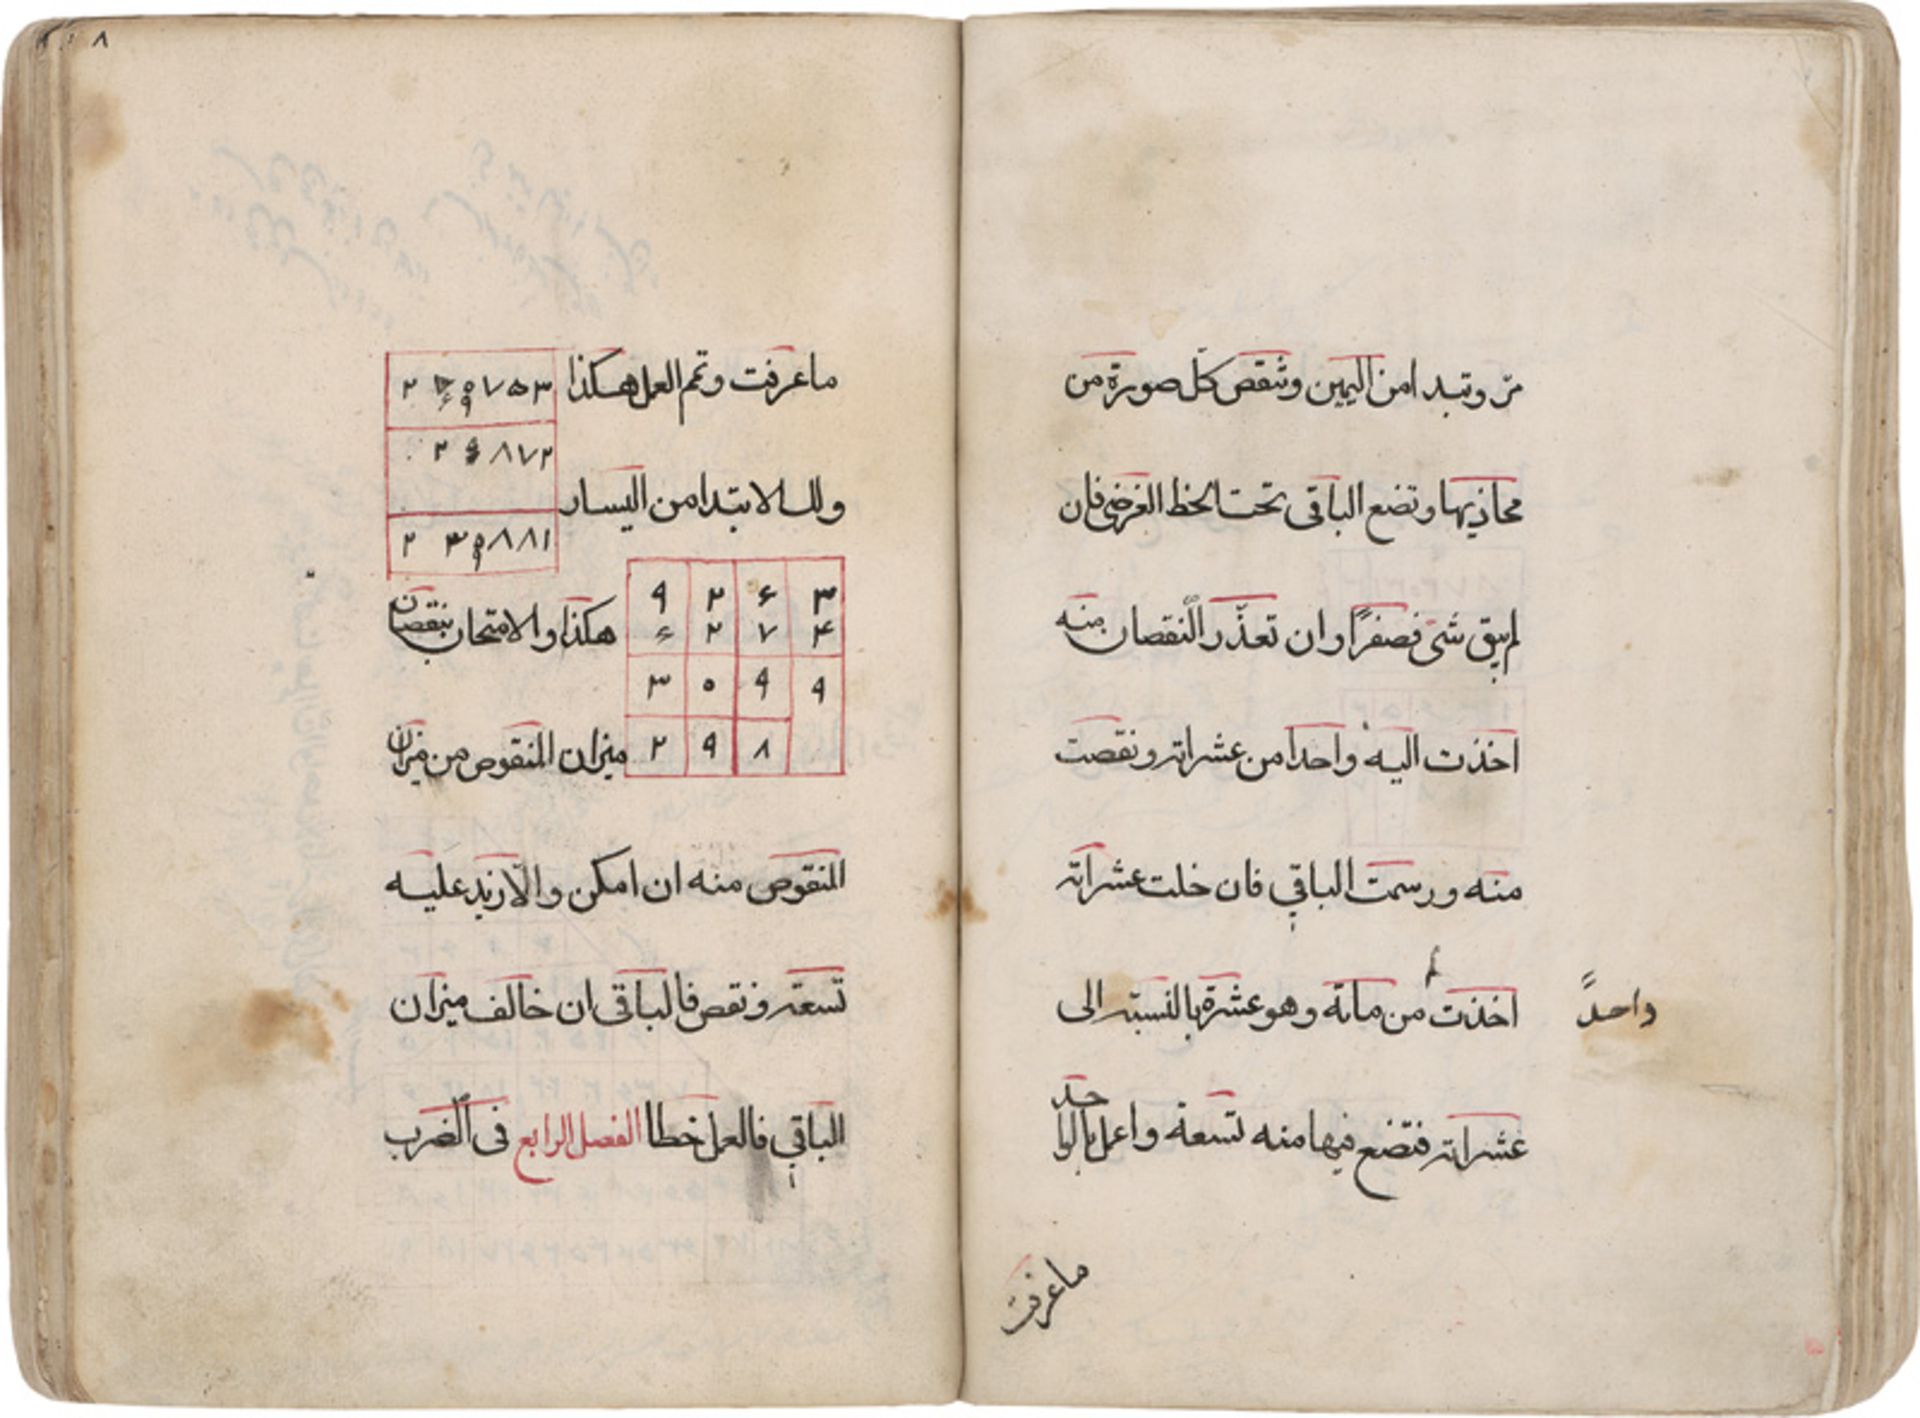 مرّ وتبدا من اليمين وتنقص كلّ صورة من
محاذيها وتضع الباقى تحت الخط العرضى فان
لم يبق شئ فصفرًا وان تعذّر النقصان منه
اخذت اليه واحدا من عشراته ونقصت
منه ورسمت الباقي فان خلت عشراته
اخذت من مائة وهو عشرة بالنسبة الى
واحدًا
عشراته فتضع فيها منه تسعة واعمل بالواحد
ما عرفت
٨
ما عرفت وتمم العمل هكذا
٧٥٣
٨٧٢
٨٨١
ولك الابتدا من اليسار
٩ ٢ ۶ ٣
۶ ٢ ٧ ۴
٣ ٥ ٩ ٩
٢ ٩ ٨
هكذا والامتحان بنقصان
ميزان المنقوص من ميزان
المنقوص منه ان امكن والّا زيد عليه
تسعة ونقص فالباقى ان خالف ميزان
الباقي فالعمل خطا الفصل الرابع فى الضرب